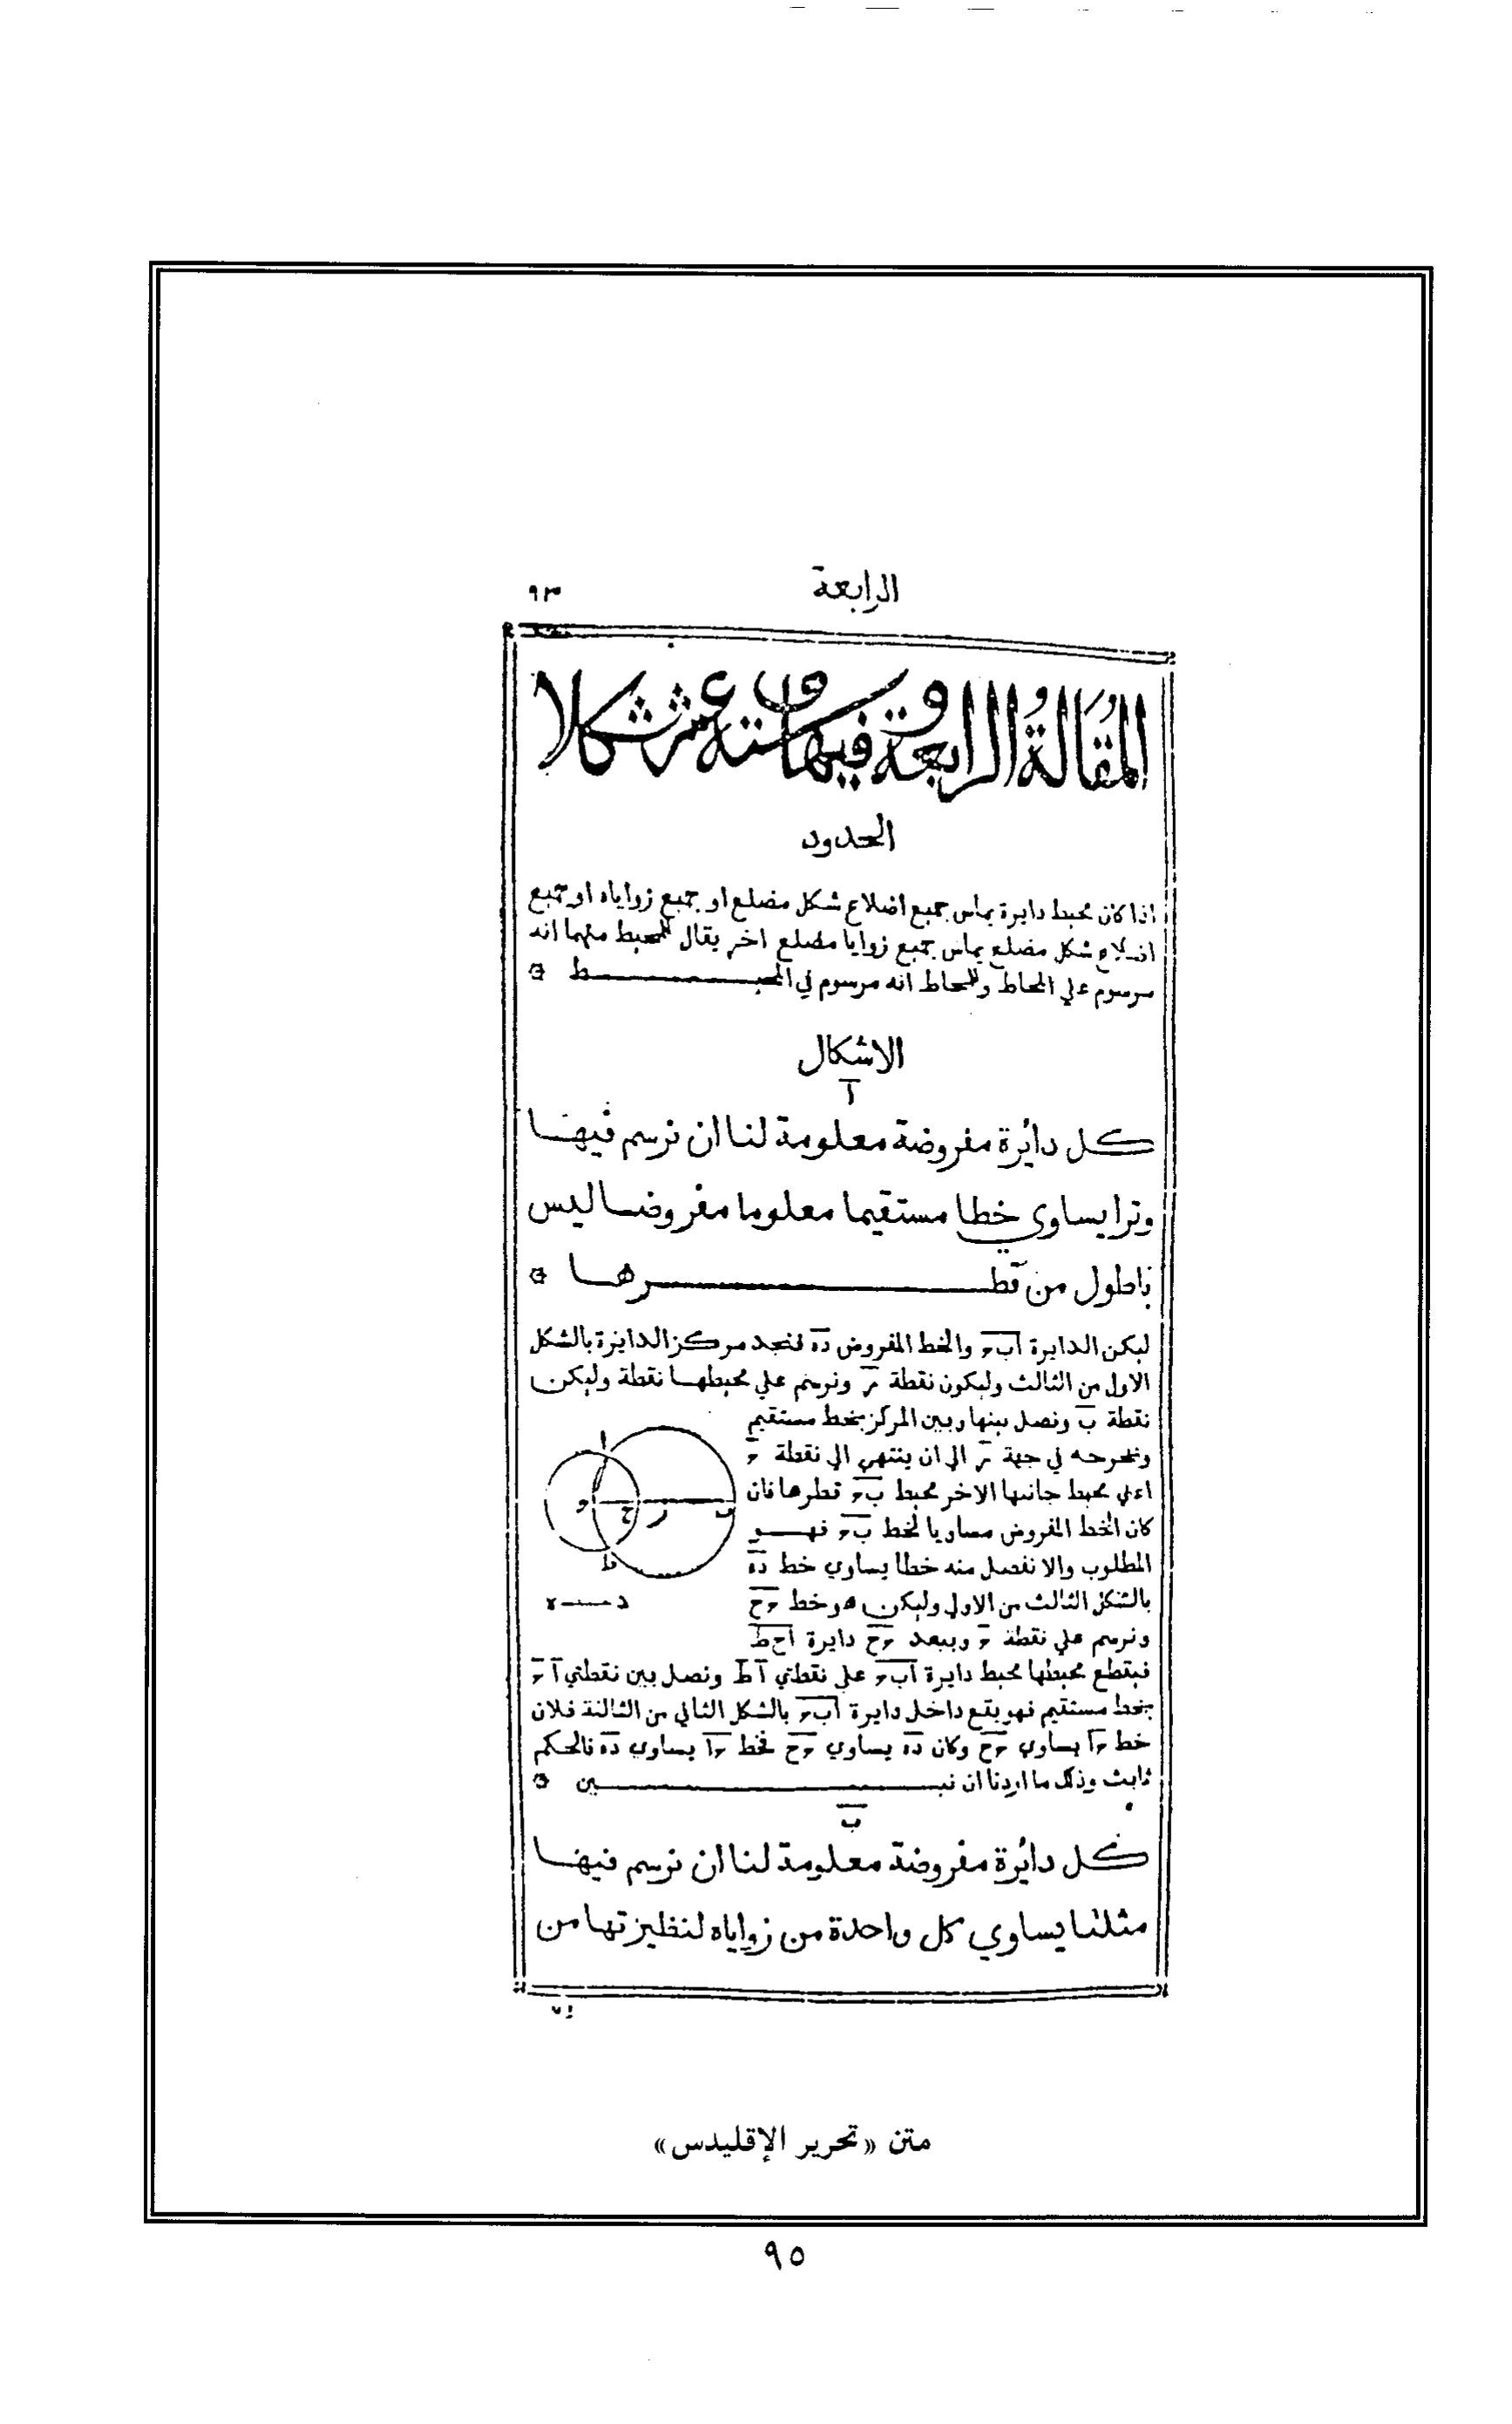 الرابعة ٩٣
المقالة الرابعة وفيها ستة عشر شكلا
الحدود
اذا كان محيط دايرة يماس جميع اضلاع شكل مضلع او جميع زواياه او جميع
اضلاع شكل مضلع يماس جميع زوايا مضلع اخر يقال للمحيط منهما انه
مرسوم علي المحاط وللمحاط انه مرسوم في المحيط
الاشكال
آ
كل دائرة مفروضة معلومة لنا ان نرسم فيها
وترا يساوي خطا مستقيما معلوما مفروضا ليس
باطول من قطرها
ليكن الدايرة اب‍ح والخط المفروض ده فنجد مركز الدايرة بالشكل
الاول من الثالث وليكون نقطة ر ونرسم علي محيطها نقطة وليكن
نقطة ب ونصل بينها وبين المركز بخط مستقيم
ونخرجه في جهة ر الي ان ينتهي الي نقطة ح
اعلي محيط جانبها الاخر محيط ب‍ح قطرها فان
كان الخط المفروض مساويا لخط ب‍ح فهو
المطلوب والا نفصل منه خطا يساوي خط ده
بالشكل الثالث من الاولي وليكن هو خط
ونرسم علي نقطة وببعد دايرة اح‍ط
فيقطع محيطها محيط دايرة علي نقطتي آ ط ونصل بين نقطتي آ
بخط مستقيم فهو يقع داخل دايرة بالشكل الثاني من الثالثة فلان
خط يساوي وكان ده يساوي فخط يساوي ده فالحكم
ثابت وذلك ما اردنا ان نبين
ا
و ح ر ب
ط
د ه
ب
كل دائرة مفروضة معلومة لنا ان نرسم فيها
مثلثا يساوي كل واحدة من زواياه لنظيرتها من
متن «تحرير الإقليدس»
٩٥